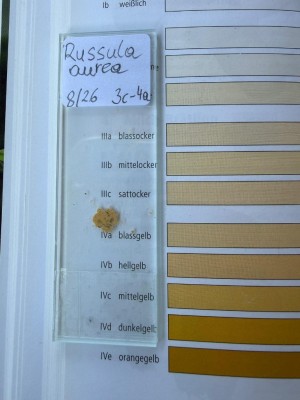 Ib weißlich
Russula
aurea
8/26 3c-4a
IIIa blassocker
IIIb mittelocker
IIIc sattocker
IVa blassgelb
IVb hellgelb
IVc mittelgelb
IVd dunkelgelb
IVe orangegelb